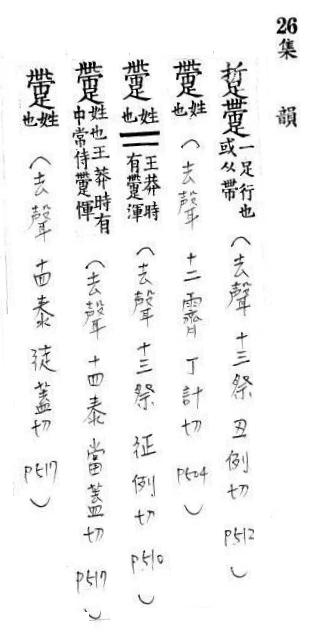 26集 韻
踅 一足行也或从帶（去聲 十三祭 丑例切 P512）
姓也（去聲 十二霽 丁計切 P504）
姓也 王莽時有 渾（去聲 十三祭 征例切 P510）
姓也王莽時有中常侍 惲（去聲 十四泰 當蓋切 P517）
姓也（去聲 十四泰 徒蓋切 P517）